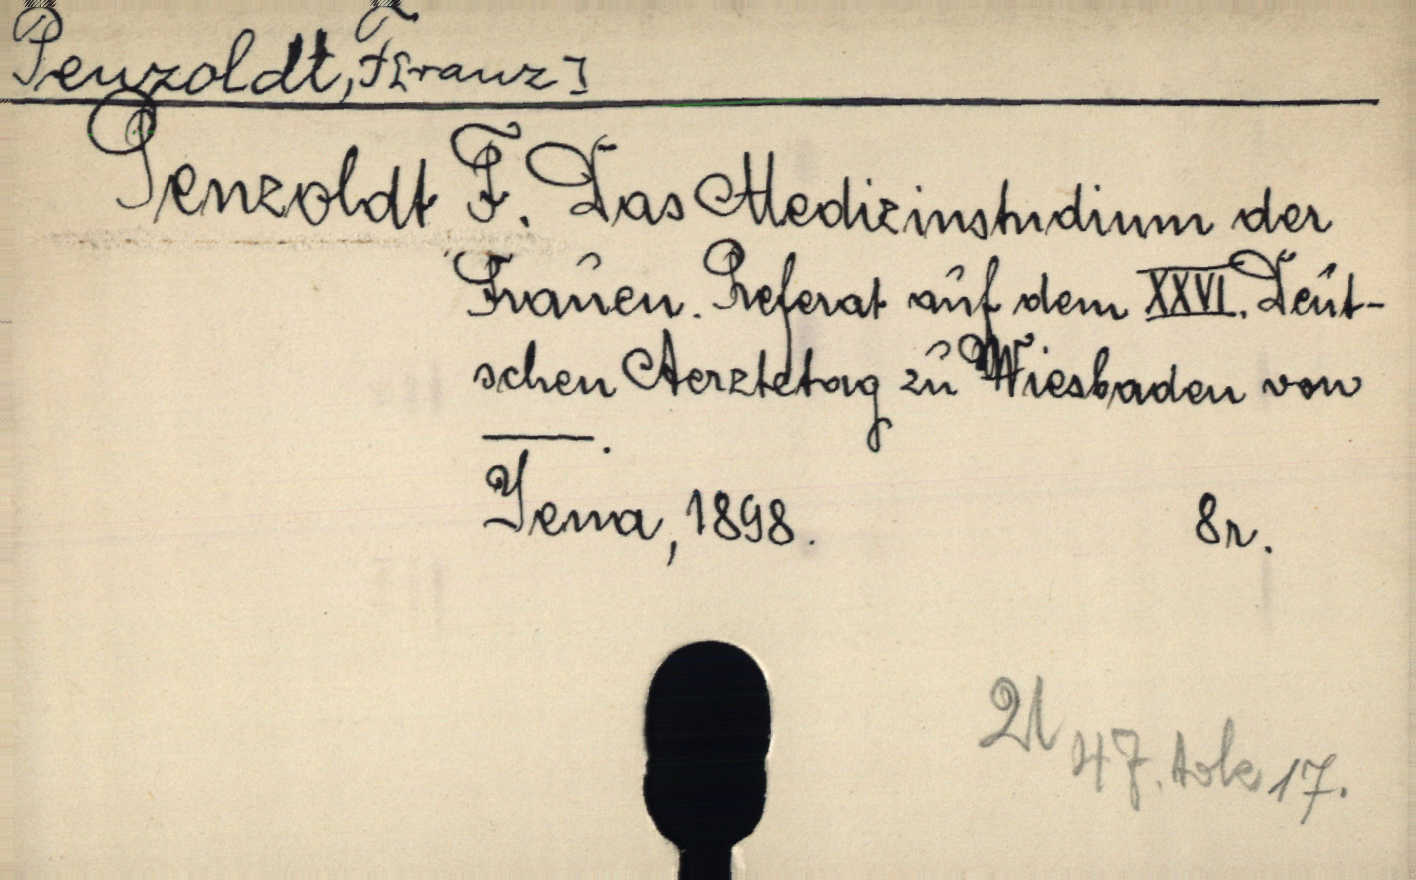 Penzoldt, F[ranz]
Penzoldt F. Das Medizinstudium der
Frauen. Referat auf dem XXVI. Deut-
schen Aerztetag zu Wiesbaden von
——.
Jena, 1898. 8r.
47. 17.